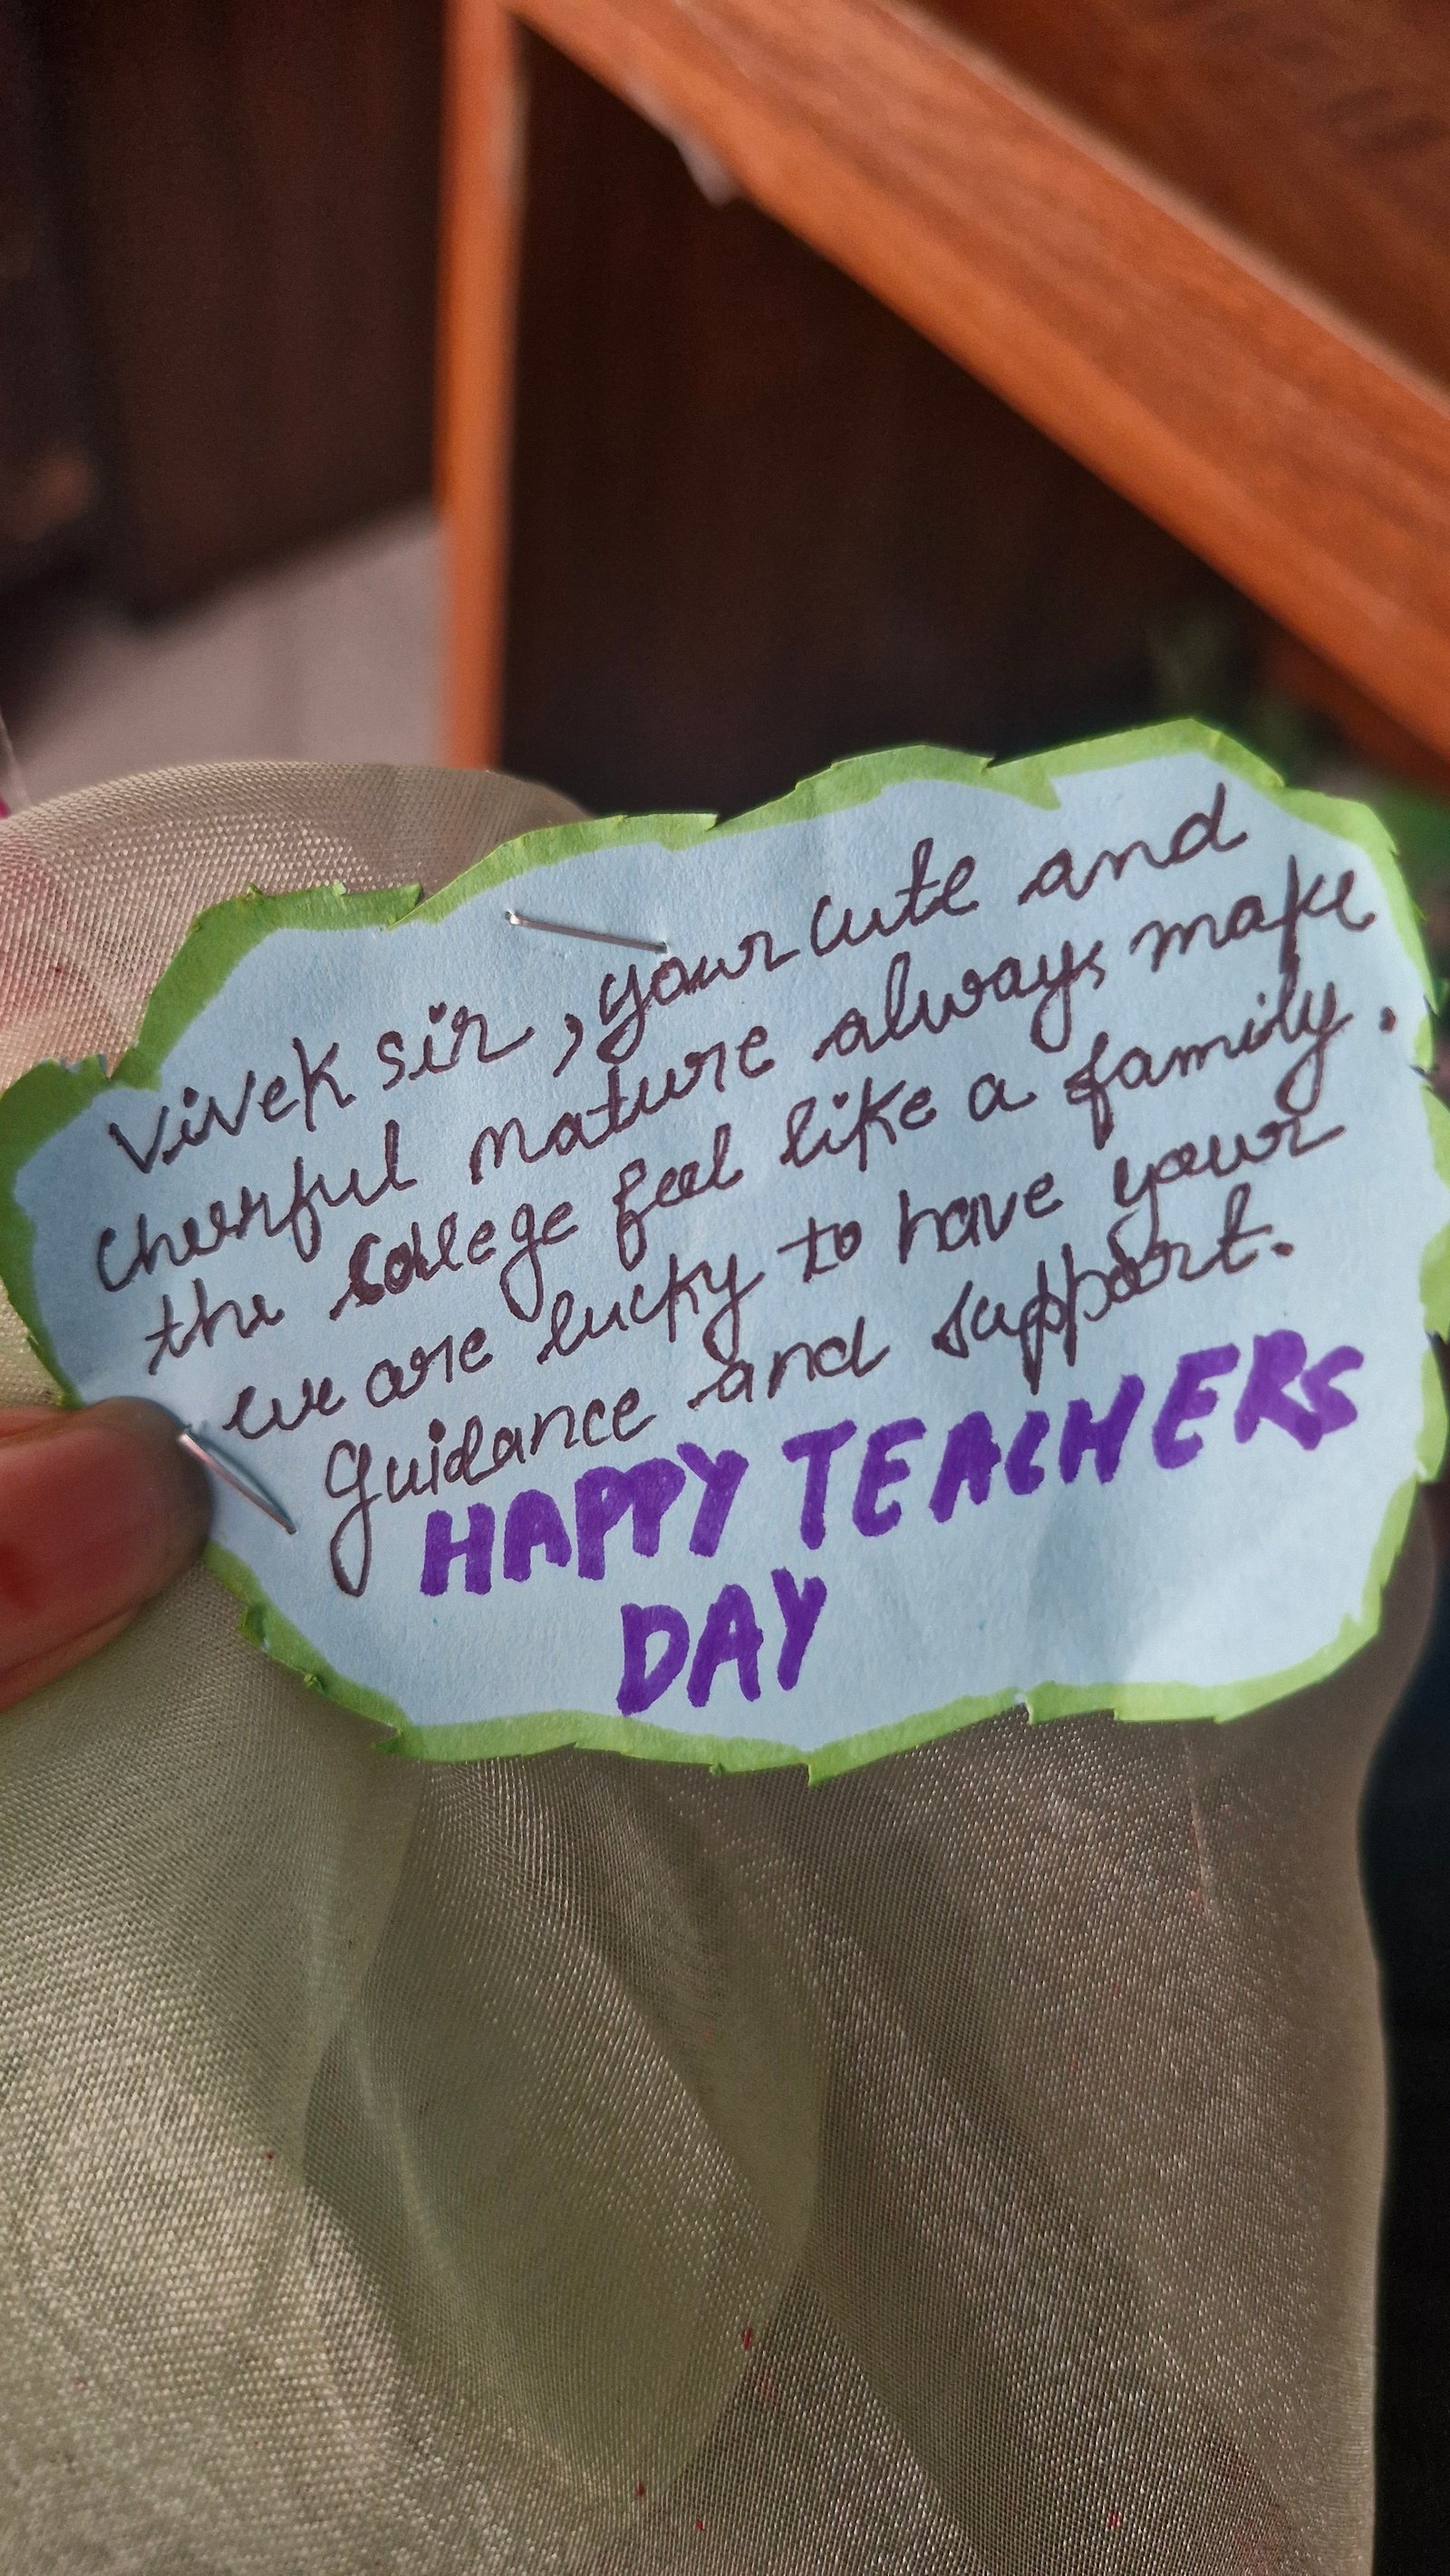 Vivek sir, your cute and
cheerful nature always make
the college feel like a family.
we are lucky to have your
guidance and support.
HAPPY TEACHERS
DAY